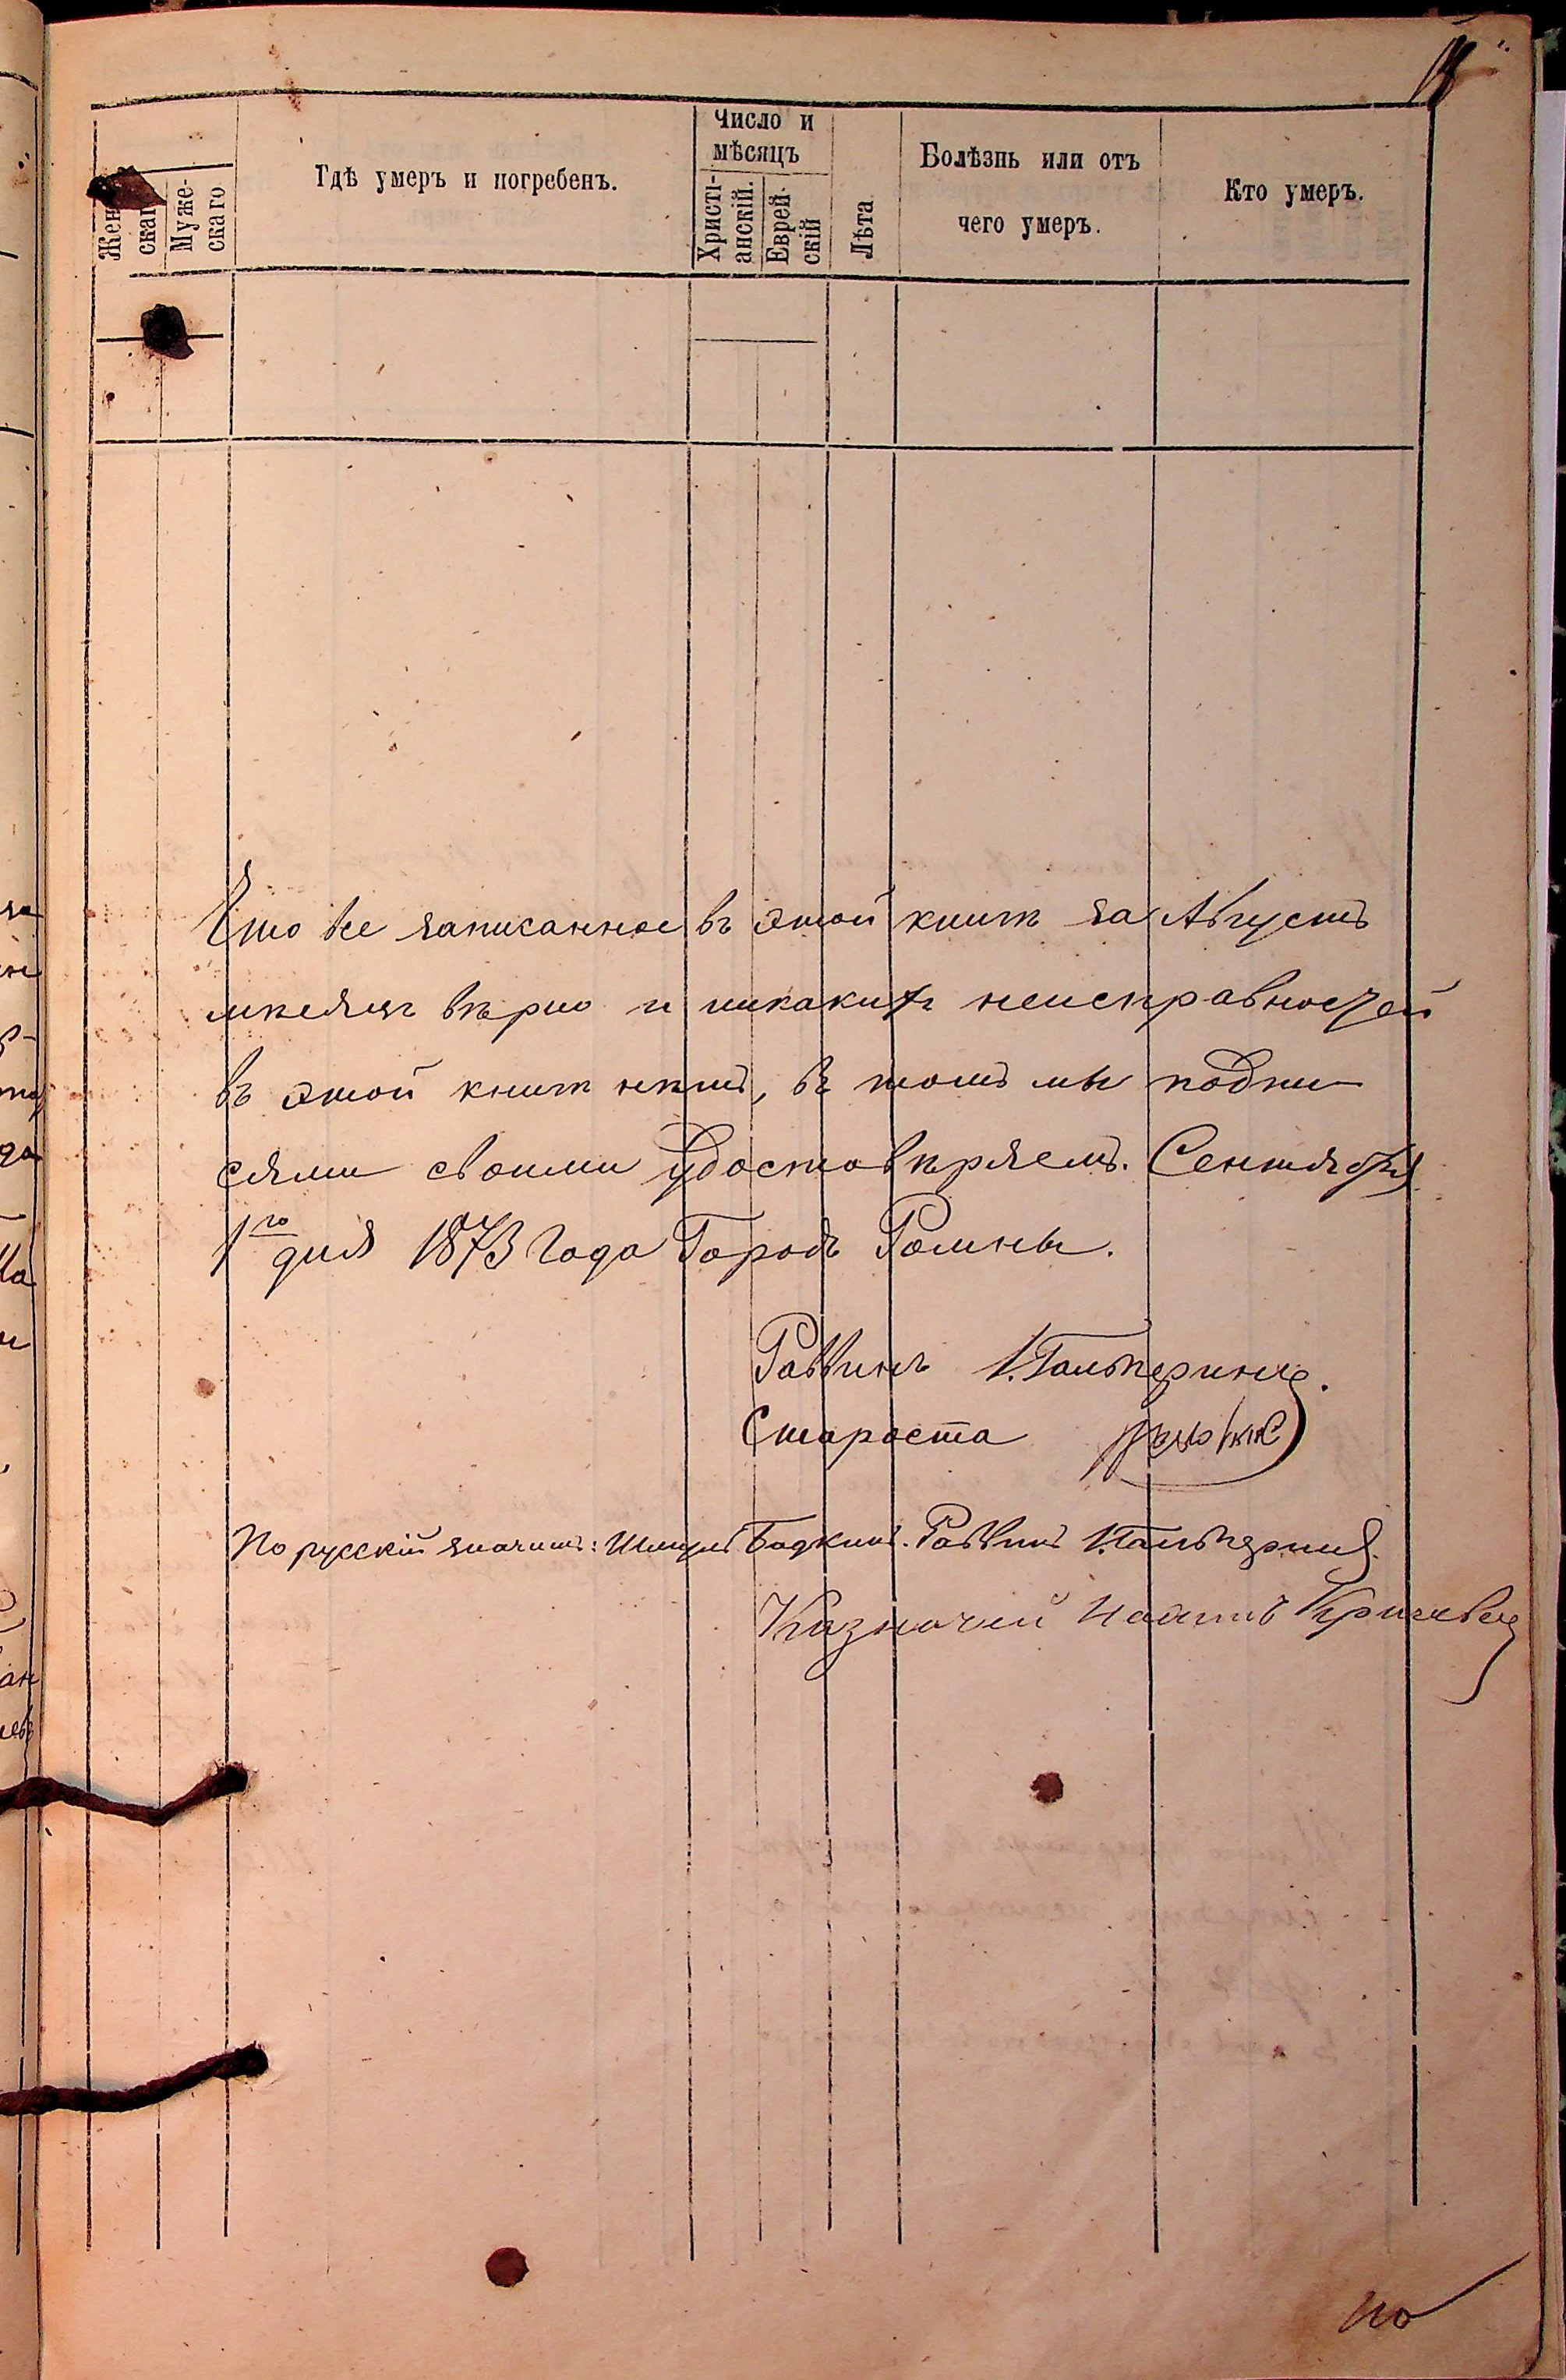 Жен
скаг
Муже-
скаго
Гдѣ умеръ и погребенъ.
Число и
мѣсяцъ
Христі-
анскій.
Еврей-
скій
Лѣта
Болѣзнь или отъ
чего умеръ.
Кто умеръ.
Что все записанное въ этой книгѣ за Августъ
мѣсяцъ вѣрно и никакихъ неисправностей
въ этой книгѣ нѣтъ, въ томъ мы подпи-
сями своими удостовѣряемъ. Сентября
1го дня 1873 года Городъ Ромны.
Раввинъ І. Гальперинъ.
Староста
По русскій значитъ: Шмуль Бодкинъ. Раввинъ І. Гальперинъ.
Казначей
по